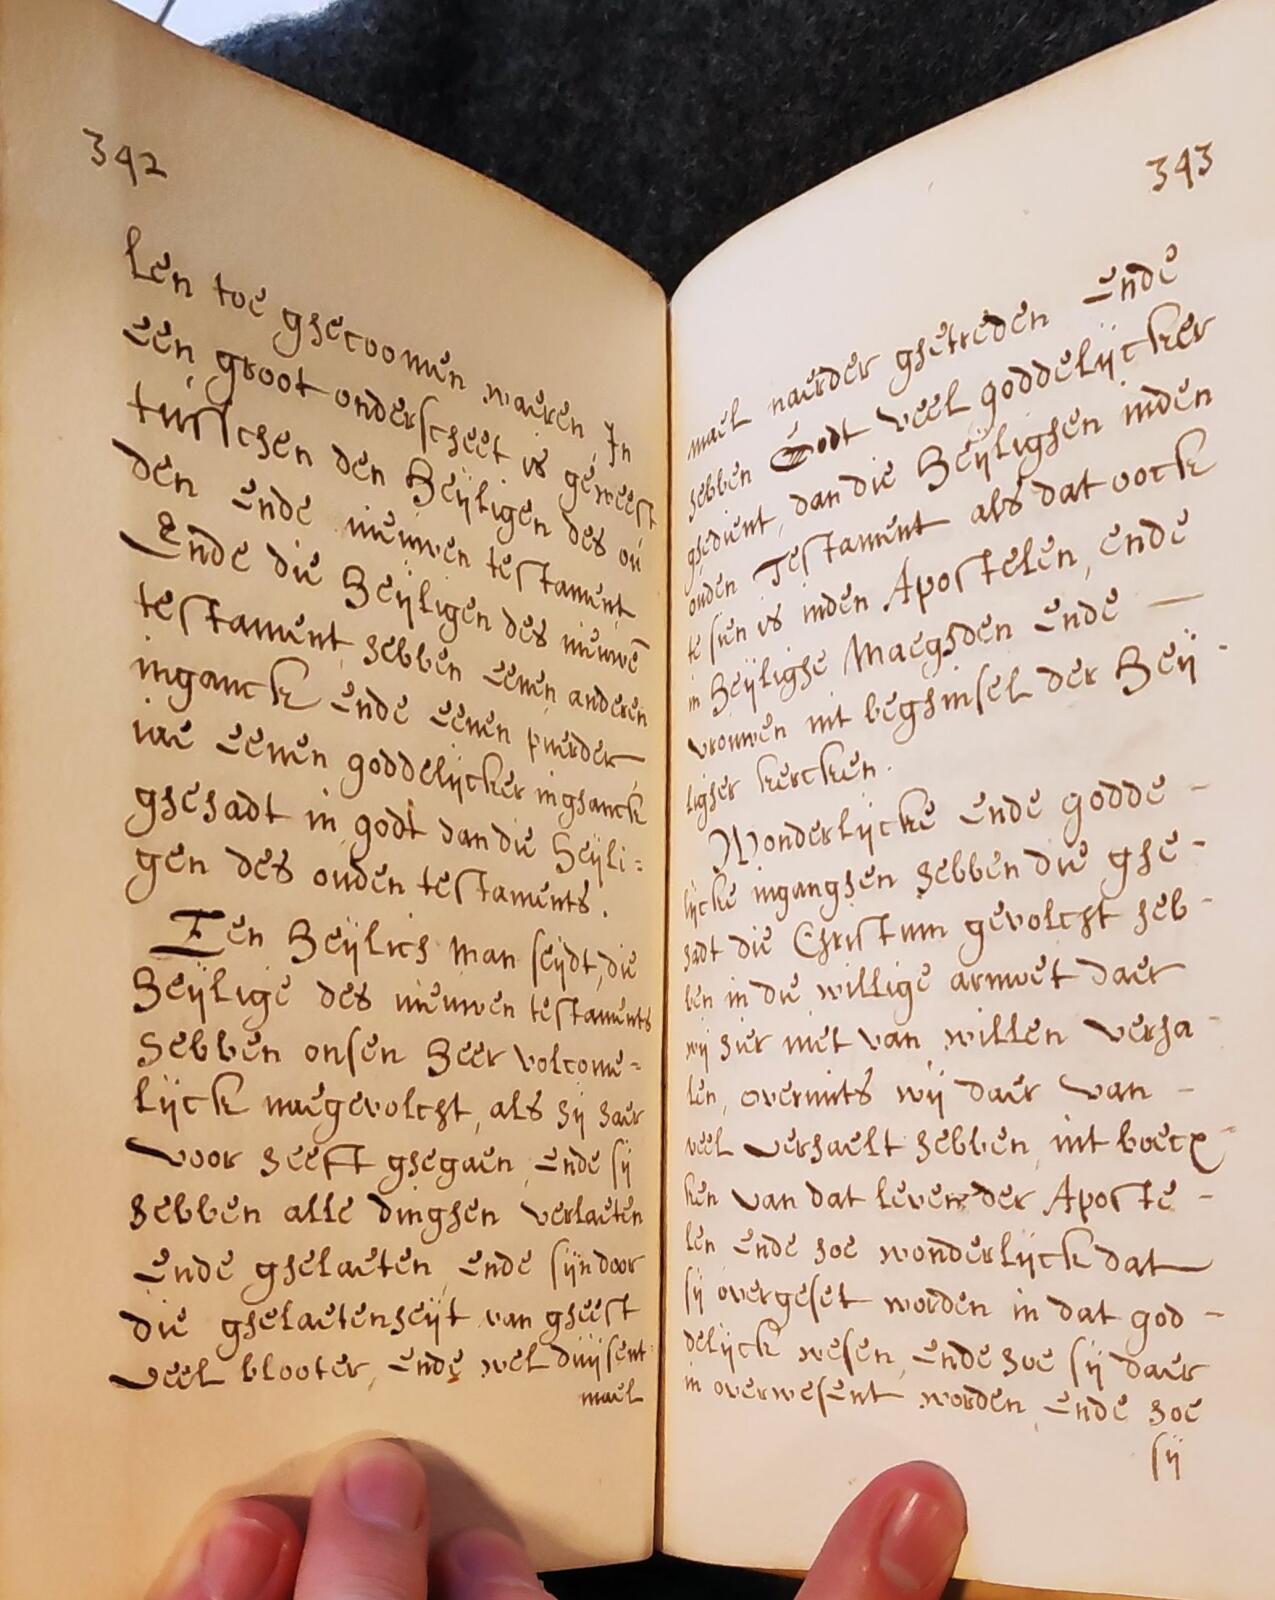 342
len toe ghecoomen waeren, In
een groot onderscheet is geweest
tusschen den Heijligen des ou
den ende nieuwen testament
Ende die Heijligen des nieuwē
testament hebben eenen anderen
inganck ende eenen puerder
iae eenen goddelijcker inghanck
ghehadt in godt dan die Heijli=
gen des ouden testaments.
Een Heijlich man seijdt, die
Heijlige des nieuwen testaments
hebben onsen Heer volcome=
lijck naegevolcht, als hij haer
voor heeft ghegaen, ende sij
hebben alle dinghen verlaeten
ende ghelaeten, ende sijn door
die ghelaetenheijt van gheest
veel blooter, ende wel duijsent
mael
343
mael naerder ghetreden ende
hebben Godt veel goddelijcker
ghedient, dan die Heijlighen inden
ouden Testament als dat oock
te sien is inden Apostelen, ende
in Heijlighe Maeghden ende —
vrouwen int beghinsel der Heij -
ligher kercken.
Wonderlijcke ende godde -
lijcke inganghen hebben die ghe -
hadt die Christum gevolcht heb -
ben in die willige armoet daer
wij hier niet van willen verha -
len, overmits wij daer van -
veel verhaelt hebben, int boecx -
ken van dat leven der Aposte -
len ende hoe wonderlijck dat
sij overgeset worden in dat god -
delijck wesen, ende hoe sij daer
in overwesent worden, ende hoe
sij